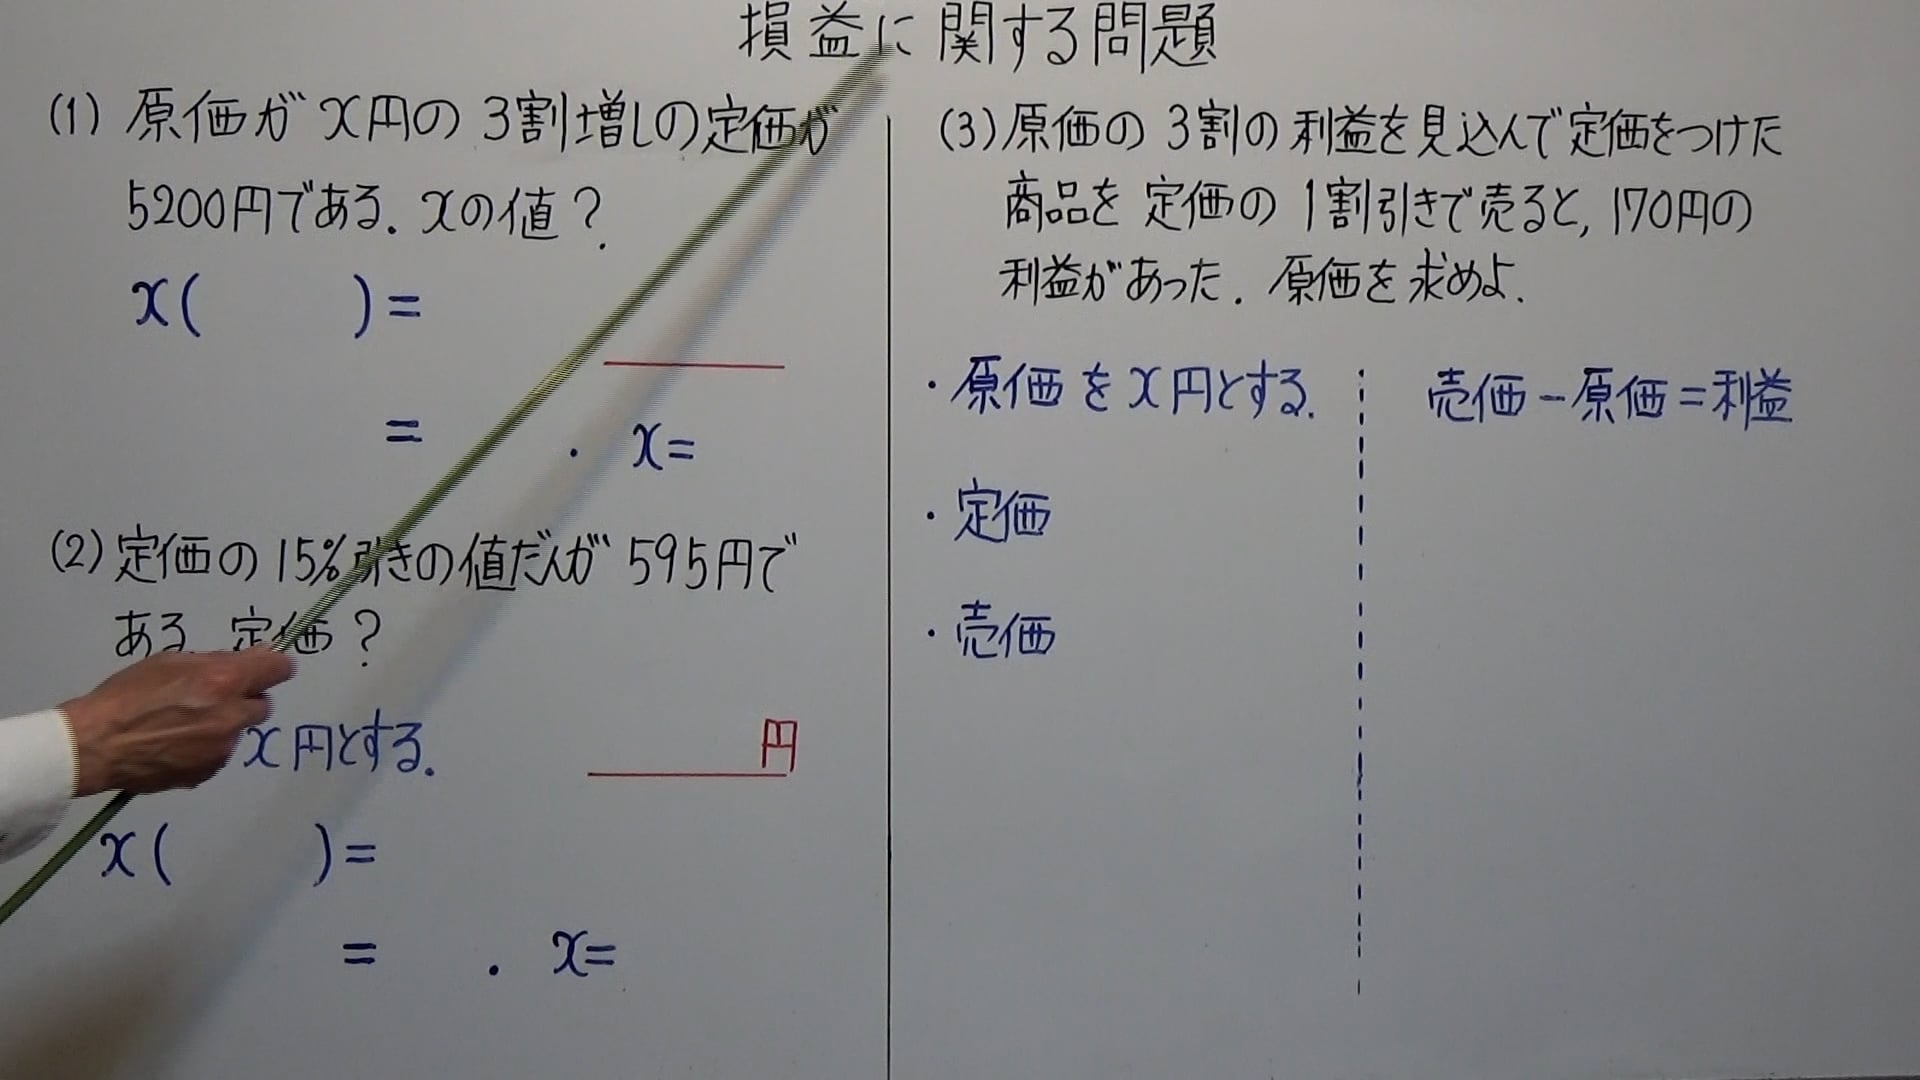 損益に関する問題
(1) 原価が x円の 3割増しの定価が
5200円である. xの値?
x(　　)=
=　　. x=
(2) 定価の 15%引きの値だんが 595円で
ある. 定価?
x円とする.
円
x(　　)=
=　　. x=
(3) 原価の 3割の利益を見込んで定価をつけた
商品を 定価の 1割引きで売ると, 170円の
利益があった. 原価を求めよ.
・原価を x円とする.
・定価
・売価
売価-原価=利益